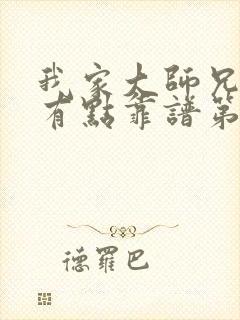 我家大師兄
有點靠譜第
德羅巴